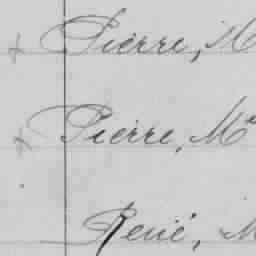 Pierre, M
Pierre, Mr
René, M